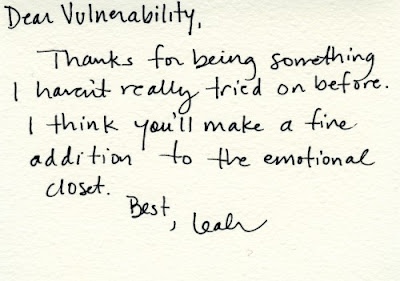 Dear Vulnerability,
Thanks for being something
I haven't really tried on before.
I think you'll make a fine
addition to the emotional
closet.
Best,
Leah